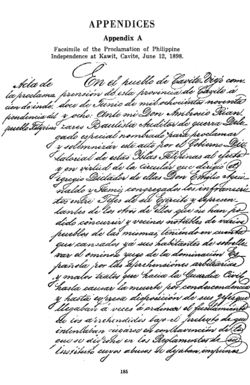 APPENDICES
Appendix A
Facsimile of the Proclamation of Philippine
Independence at Kawit, Cavite, June 12, 1898.
Acta de
la proclama
ción de inde
pendencia del
pueblo Filipino
En el pueblo de Cavite Viejo com
prension de esta provincia de Cavite á
doce de Junio de mil ochocientos noventa
y ocho: Ante mi Don Ambrosio Rian
zares Bautista Auditor de guerra
especial nombrado para proclamar
y solemnizar este acto por el Gobierno Dic
tatorial de estas Islas Filipinas al efecto
en virtud de la circular que dirigió el
Egregio Dictador de ellas Don Emilio Agui
naldo y Famy, congregados los infrascri
tos entre Jefes de su Ejercito y represen
tantes de los
varios
pueblos de las mismas, teniendo en cuenta
que cansados ya sus habitantes de sobrelle
var el ominoso yugo de la dominación Es
pañola por las aprehensiones arbitrarias
y malos tratos que hacia la Guardia Civil
hasta causar la muerte
y hasta expresa disposición de sus Gefes que
llegaban á veces á ordenar el fusilamiento
de los aprehendidos bajo el pretesto de que
intentaban fugarse en contravencion de lo
que se disponia en los Reglamentos de su
Instituto cuyos abusos se dejaban impunes
185